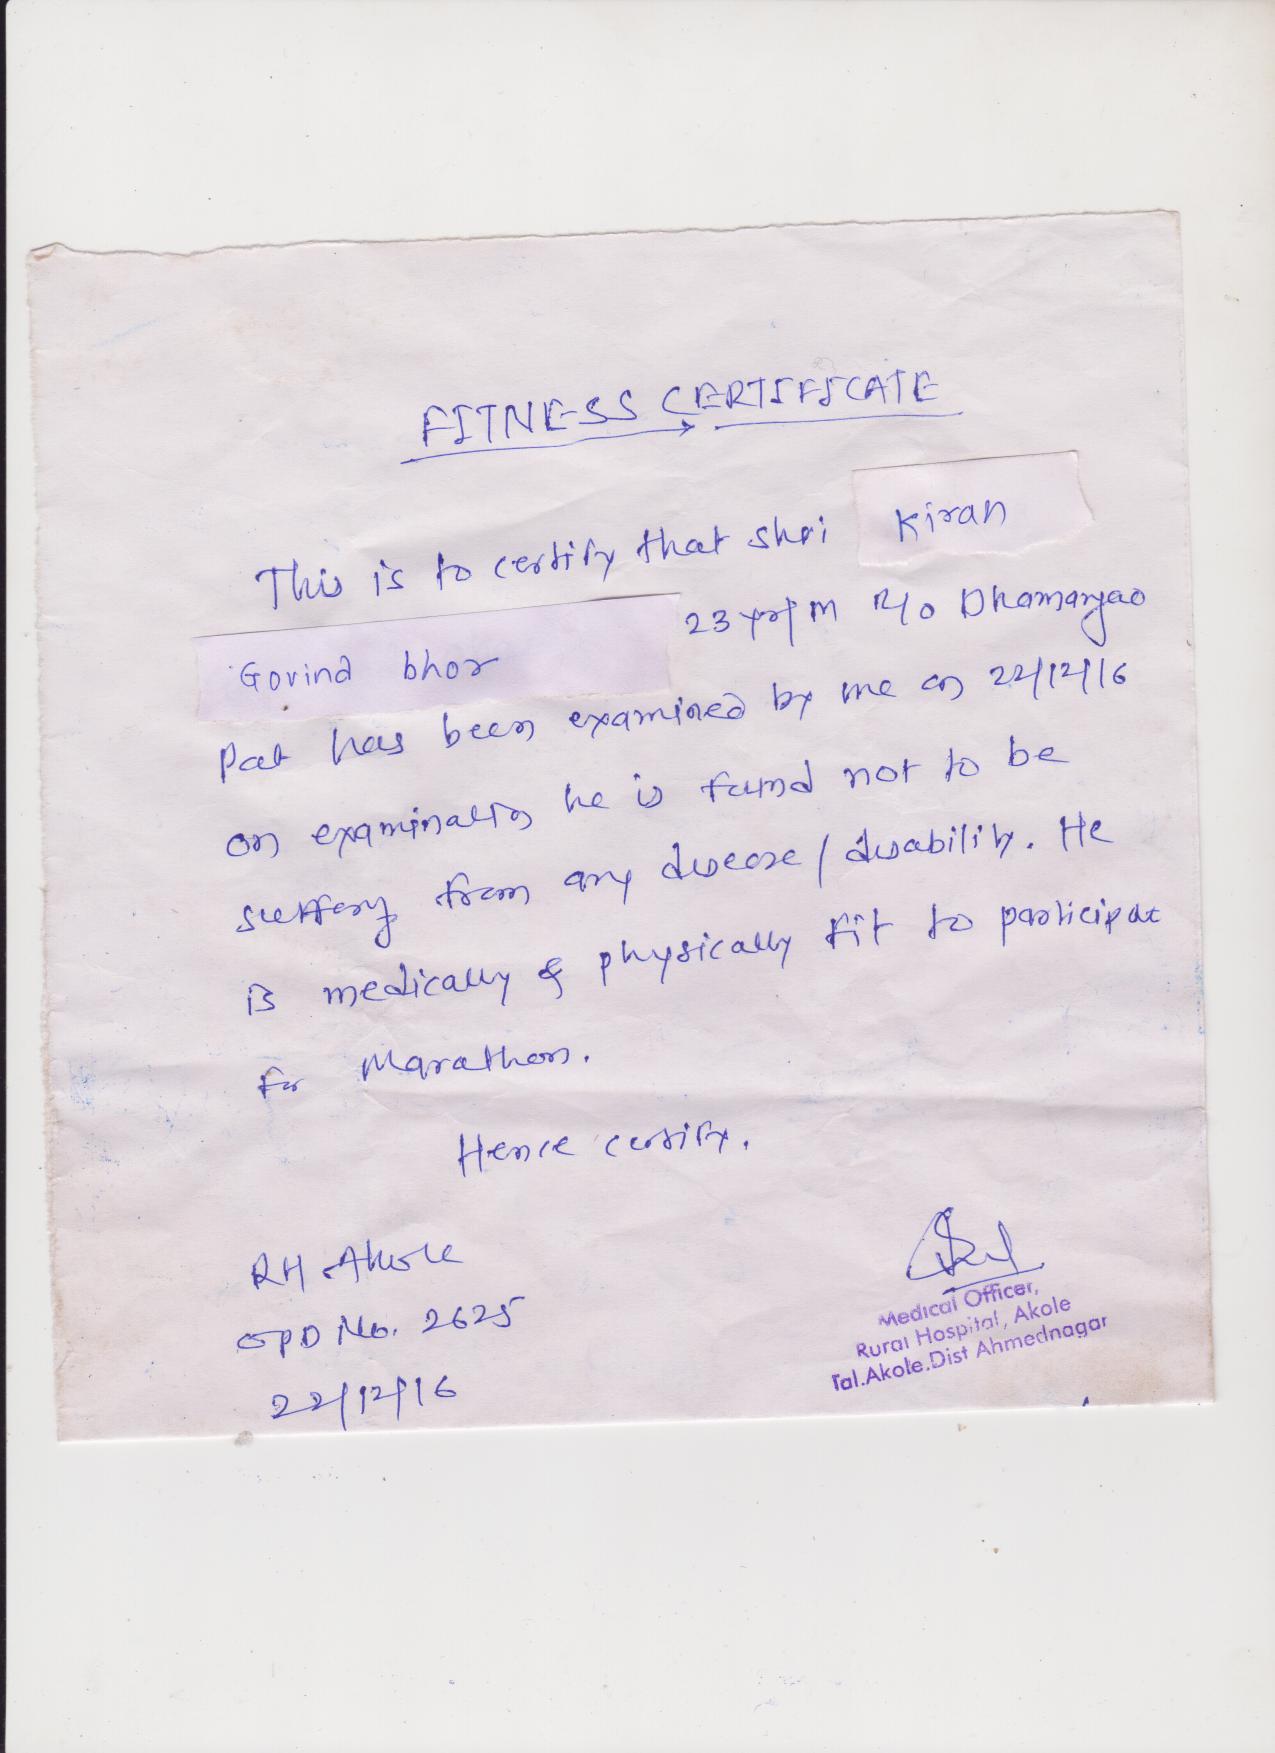 FITNESS CERTIFICATE
This is to certify that shri Kiran
Govind bhor 23 yr/M R/o Dhamangao
Pat has been examined by me on 22/12/16
on examination he is found not to be
suffering from any disease / disability. He
is medically & physically fit to participate
for Marathon.
Hence certify.
RH Akole
OPD No. 2625
22/12/16
Medical Officer,
Rural Hospital, Akole
Tal.Akole.Dist Ahmednagar